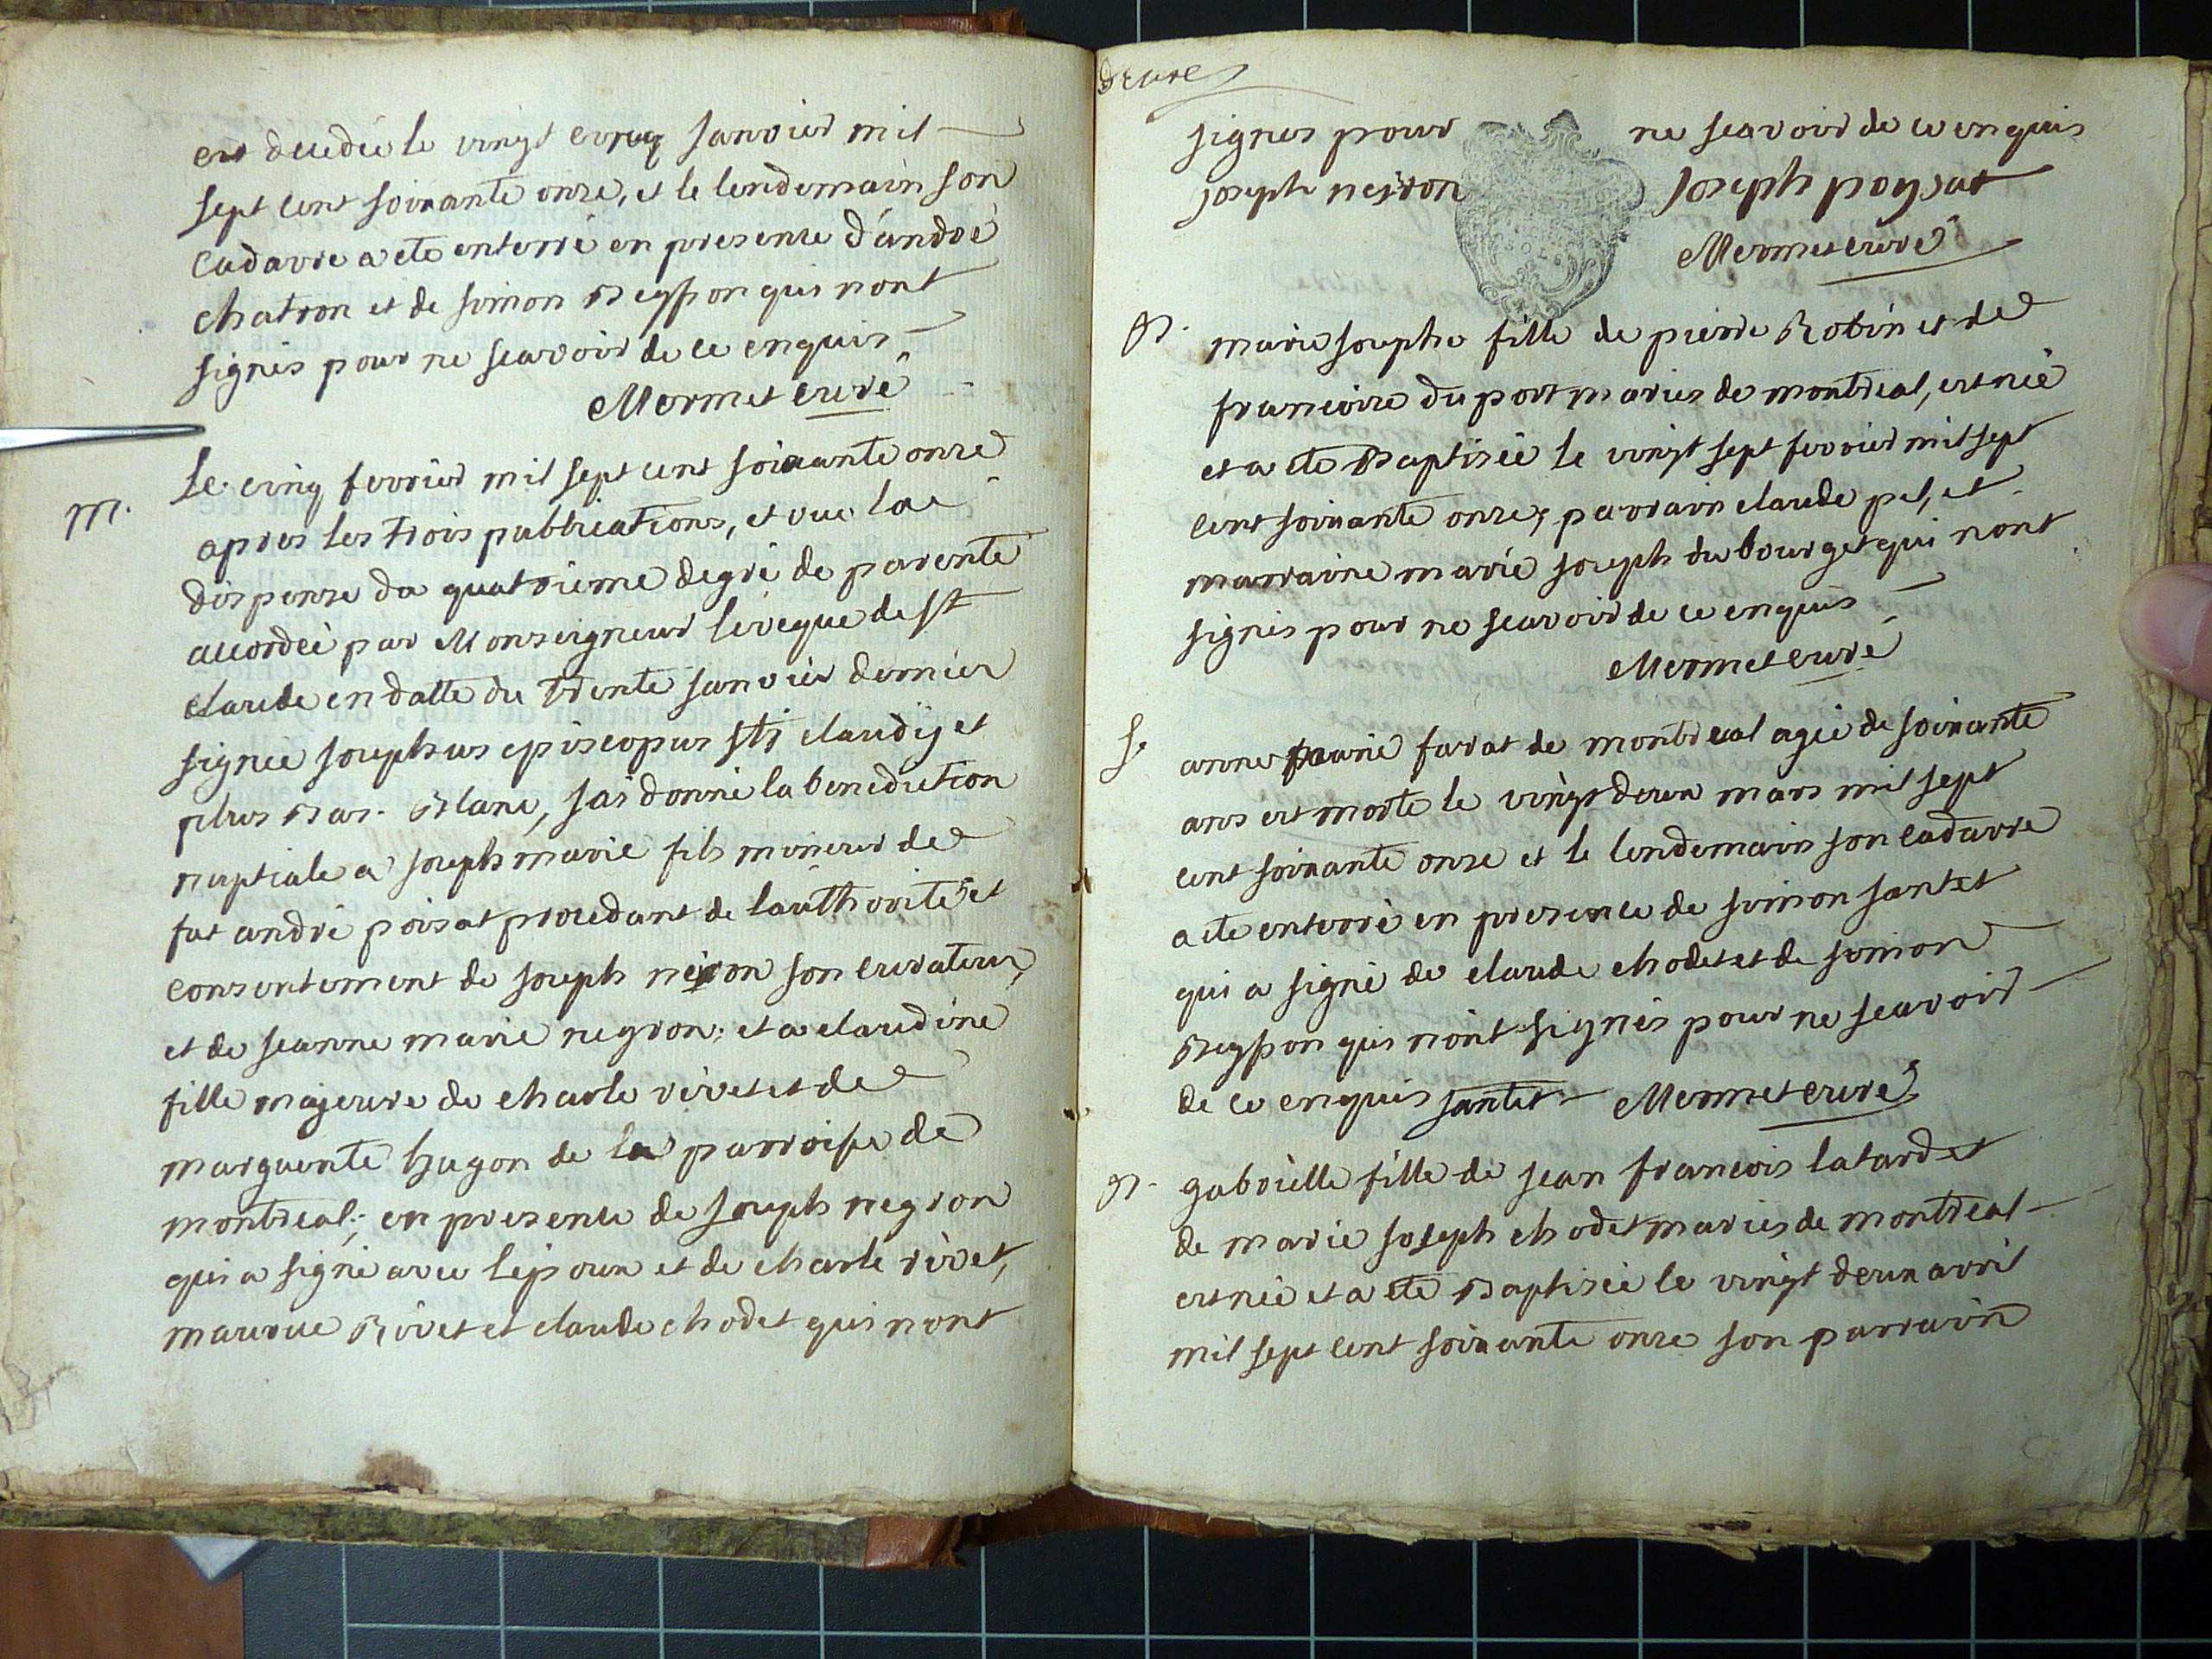 est decedée le vingt cinq janvier mil
sept cent soixante onze, et le lendemain son
cadavre a ete enterré en presence d'andré
chatron et de simon Beysson qui n'ont
signés pour ne scavoir de ce enquis
Mermet curé
M. Le cinq fevrier mil sept cent soixante onze
apres les trois publications, et vue la
dispense du quatrieme degré de parente
accordée par Monseigneur l'eveque de St
claude en datte du trente janvier dernier
signée josephus episcopus Sti claudij et
plus Bas. Blanc, jai donné la benediction
nuptiale a joseph marie fils mineur de
fut andré poisat procedant de l'authorité et
consentement de joseph neiron son curateur,
et de jeanne marie neyron; et a claudine
fille majeure de charle rivet et de
marguerite hugon de la parroisse de
montreal; en presence de joseph neyron
qui a signé avec l'epoux et de charle rivet,
maurice Rivet et claude chodet qui nont
signés pour ne scavoir de ce enquis
joseph neyron Joseph poysat
Mermet curé
B. marie josephe fille de pierre Robin et de
francoise duport mariés de montreal, est née
et a ete Baptisée le vingt sept fevrier mil sept
cent soixante onze, parrain claude pel, et
marraine marie joseph du bourget qui nont
signés pour ne scavoir de ce enquis
Mermet curé
S. anne marie farat de montreal agée de soixante
ans est morte le vingt deux mars mil sept
cent soixante onze et le lendemain son cadavre
a ete enterré en presence de simon jantet
qui a signé de claude chodet et de simon
Beysson qui n'ont signés pour ne scavoir
de ce enquis jantet Mermet curé
B. gabrielle fille de jean francois latard et
de marie joseph chodet mariés de montreal
est née et a ete Baptisée le vingt deux avril
mil sept cent soixante onze son parrain